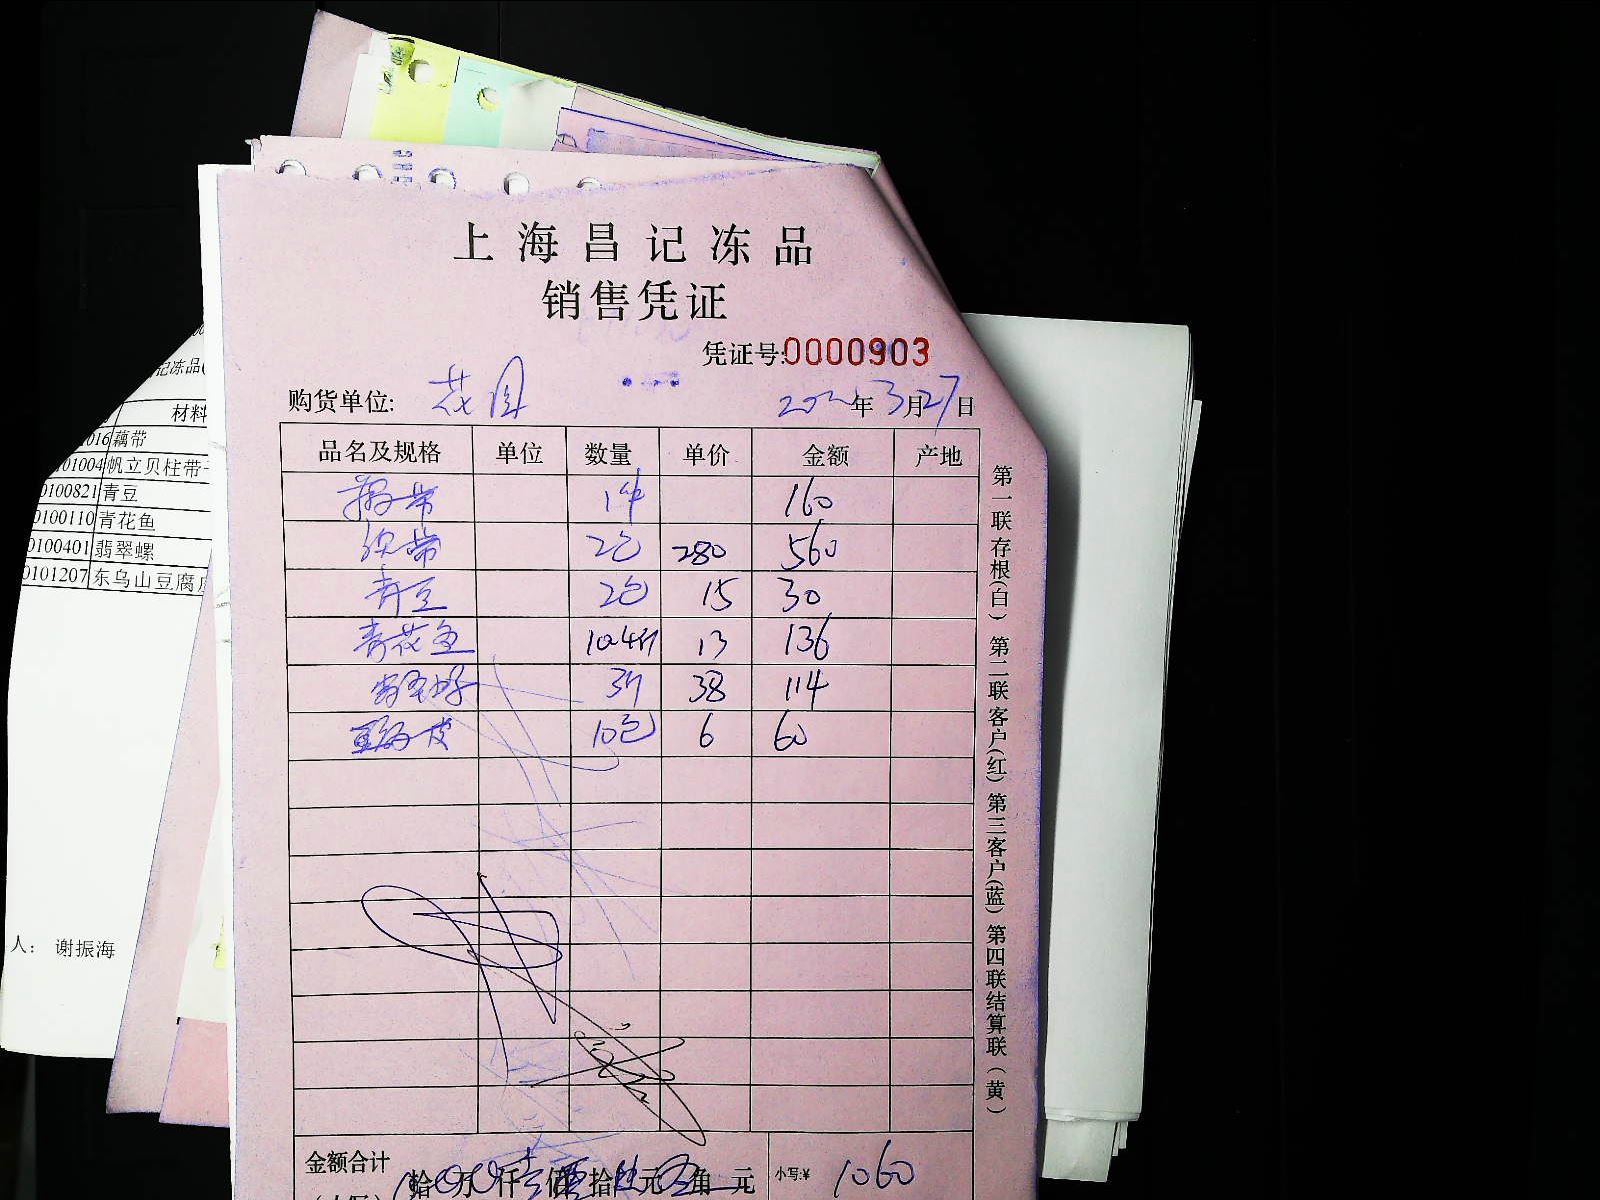 上海昌记冻品
销售凭证
凭证号:0000903
购货单位: 花园
年3月27日
品名及规格 单位 数量 单价 金额 产地
藕带 1件 160
带 2包 280 560
青豆 2包 15 30
青花鱼 10.4斤 13 136
3斤 38 114
皮 10包 6 60
金额合计
拾 万 仟 佰 拾 元 角 元 小写:¥ 1060
第一联存根(白) 第二联客户(红) 第三客户(蓝) 第四联结算联(黄)
记冻品(
材料
016 藕带
01004 帆立贝柱带子
0100821 青豆
0100110 青花鱼
0100401 翡翠螺
0101207 东乌山豆腐皮
人: 谢振海